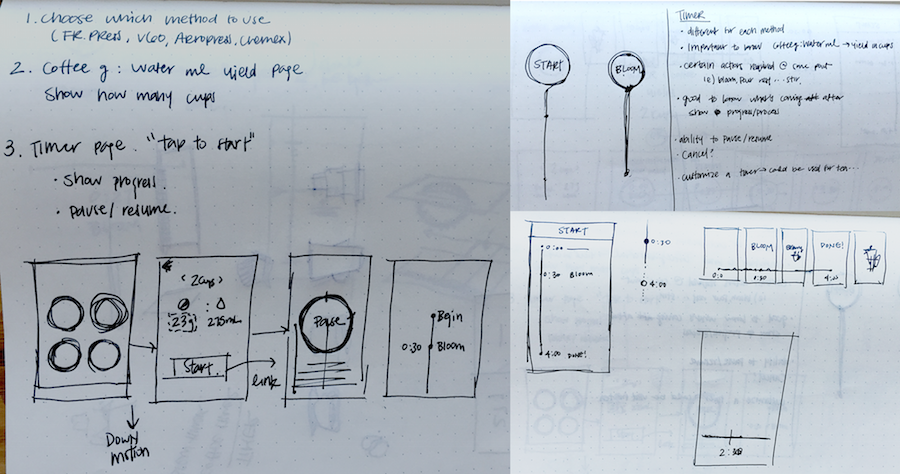 1. Choose which method to use
(FR. PRESS, V60, Aeropress, Chemex)
2. Coffee g : water ml yield page
Show how many cups
3. Timer page. "tap to start"
• Show progress.
• pause/resume.
< 2 cups >
:
23g
Start.
Pause
Begin
0:30 Bloom
link
Down
motion
START
BLOOM
Timer
• different for each method
• Important to know coffee g: water ml → yield cups
• certain actions required @ some point
ie) bloom, pour rest ... stir.
• good to know what's coming after
show progress/process
• ability to pause/resume
• Cancel?
• customize a timer → could be used for tea...
START
0:00
0:30 Bloom
4:00 DONE!
0:30
4:00
BLOOM
DONE!
0:0
0:30
4:00